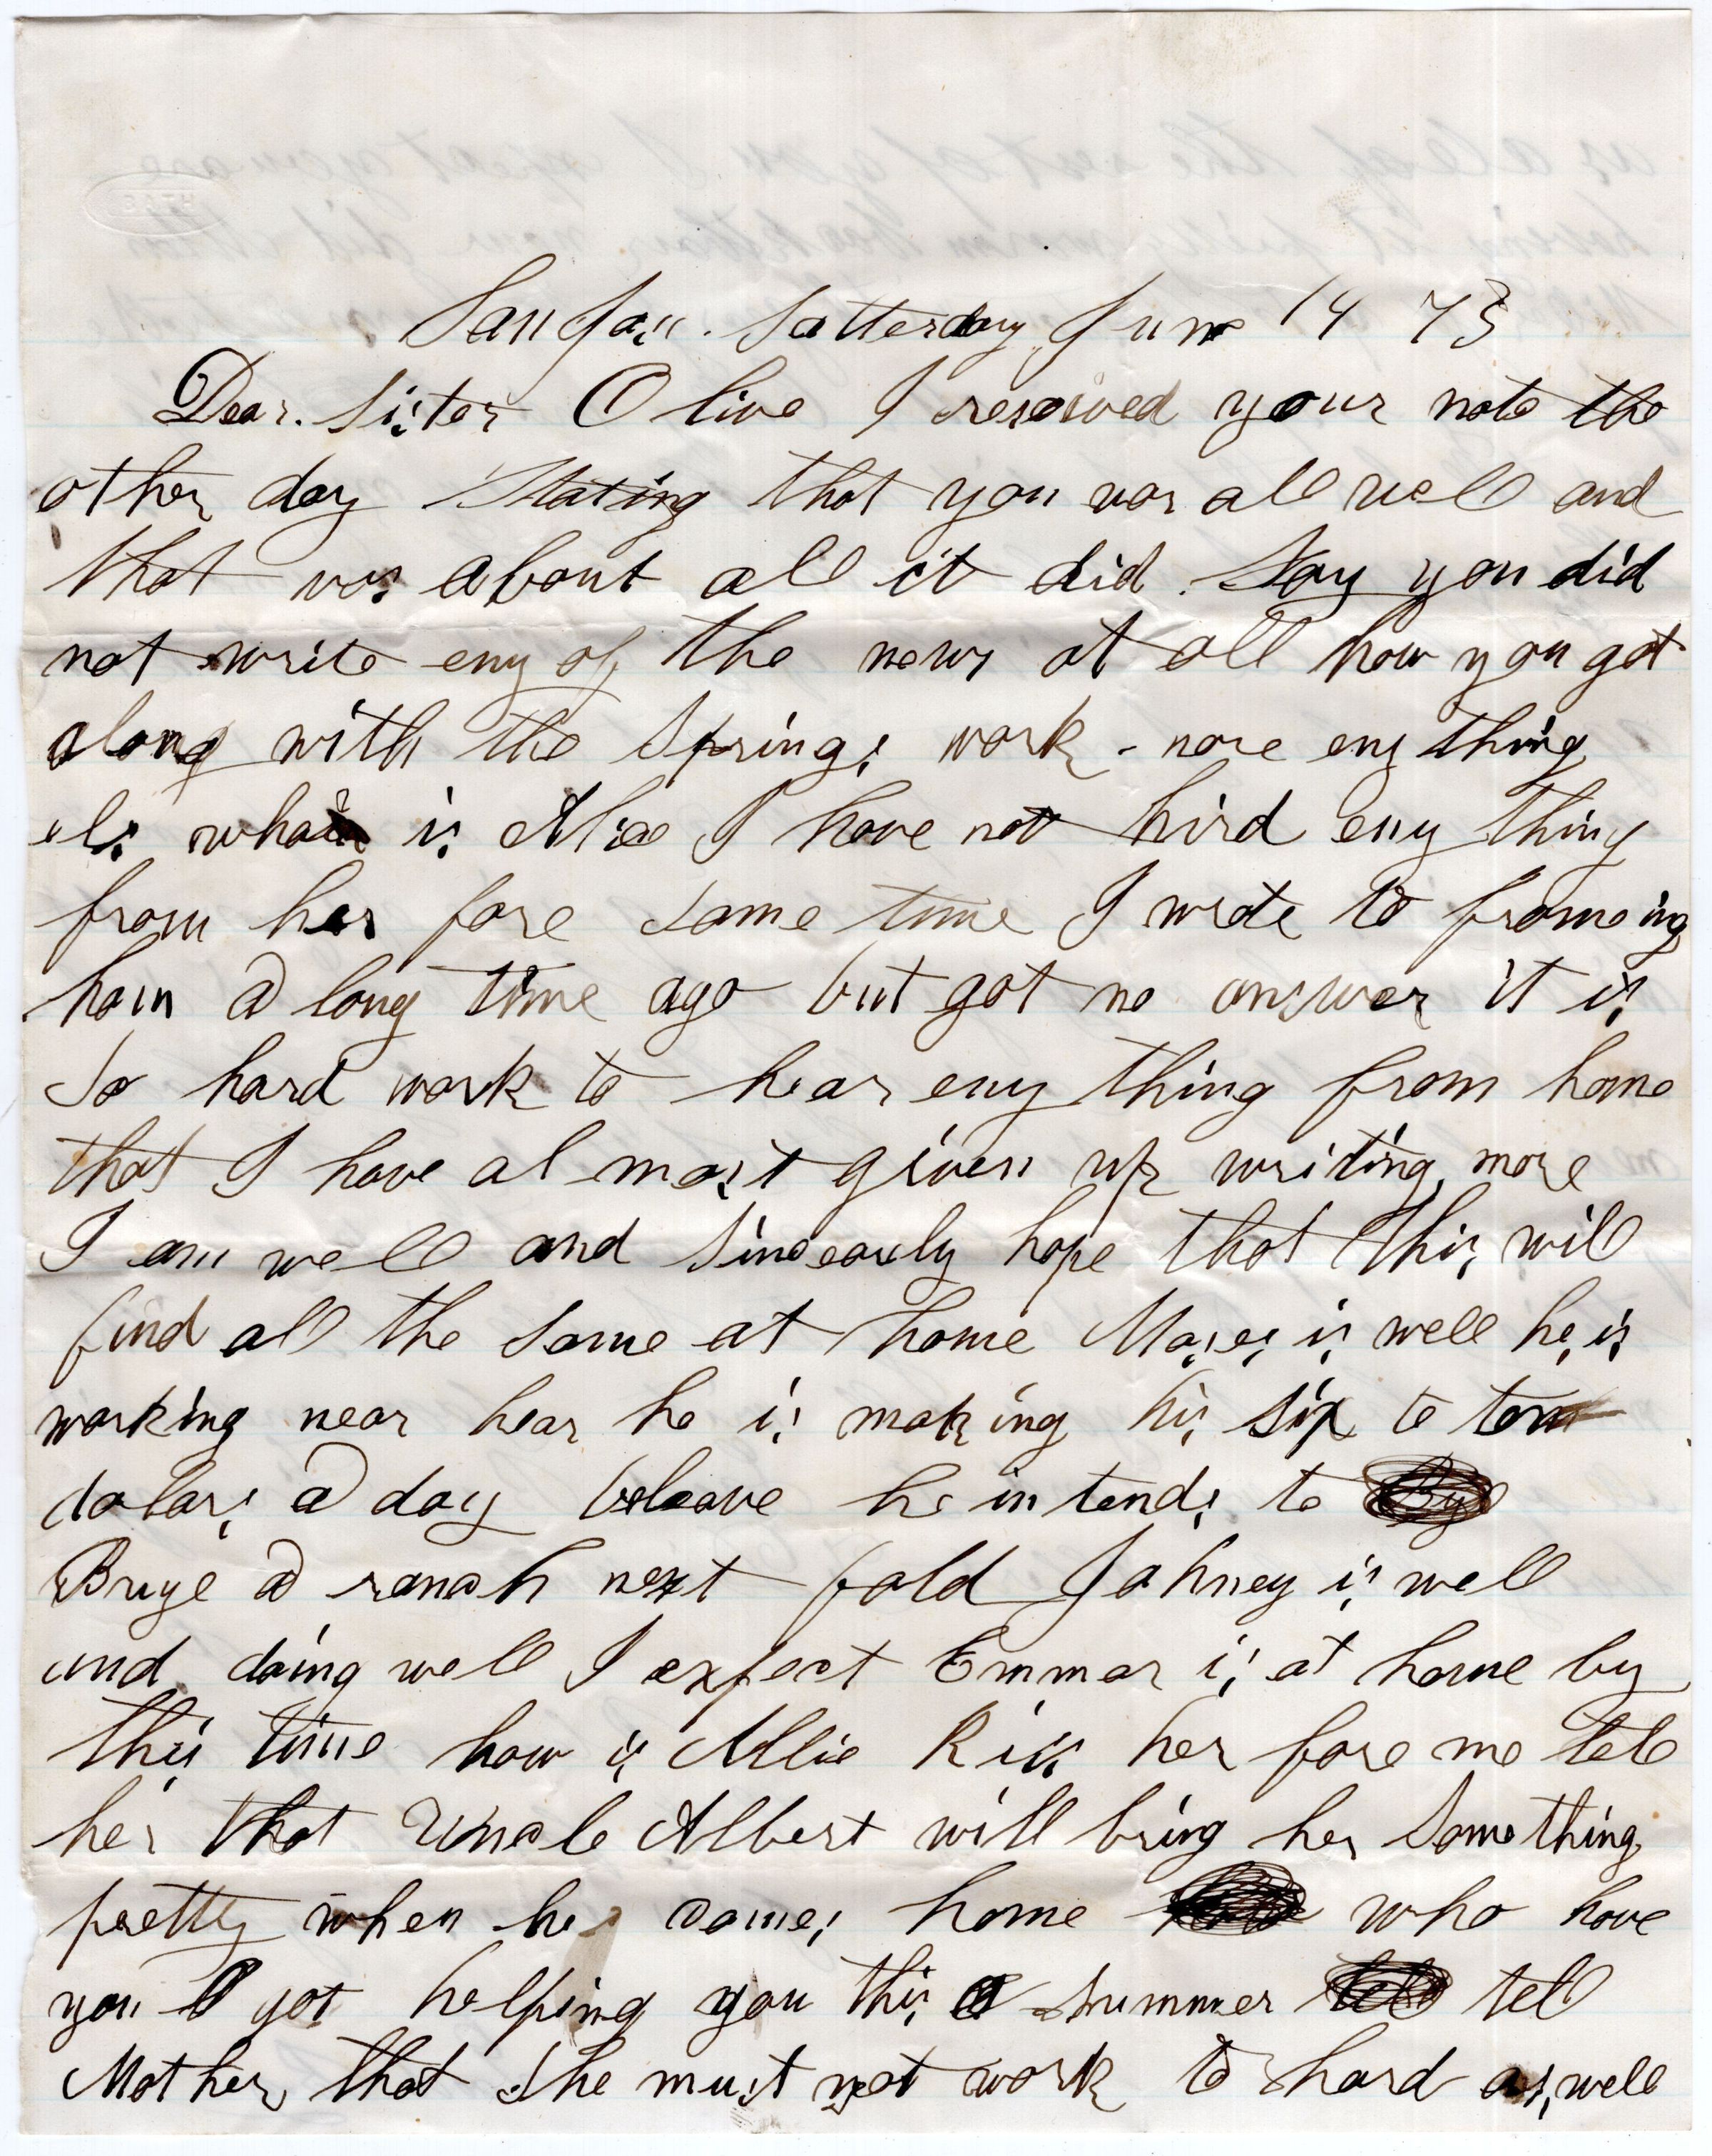 San Jose. Satterday June 14 73
Dear. Sister Olive I reseived your note the
other day Stating that you war all well and
that was about all it did. Say you did
not write eny of the news at all how you got
along with the Springs work - nore eny thing
els whair is Alice I have not hird eny thing
from her fore some time I wrote to frameing
ham a long time ago but got no answer it is
So hard work to hear eny thing from home
that I have al most given up writing more
I am well and Sincearly hope that this will
find all the Same at home Moses is well he is
working near hear he is making his six to ten
dolars a day beleave he intends to By
Buye a ranch next fald Johney is well
and doing well I expect Emmar is at home by
this time how is Allie Kiss her fore me tell
her that Uncle Albert will bring her Something
pretty when he comes home who have
you got helping you this Summer tell tell
Mother that She must not work to hard as well